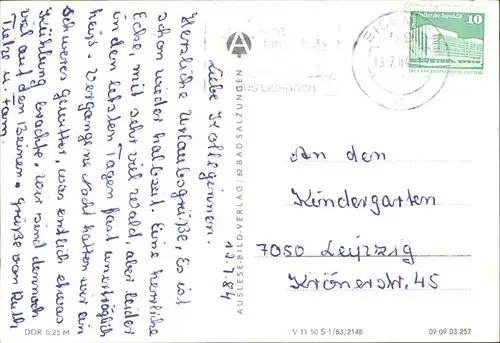 12.7.84
Liebe Kolleginnen.
Herzliche Urlaubsgrüße, Es ist
schon wieder halbzeit. Eine herrliche
Ecke, mit sehr viel Wald, aber leider
in den letzten Tagen fast unerträglich
heiß. Vergangene Nacht hatten wir ein
schweres Gewitter, was endlich etwas
Kühlung brachte. Wir sind dennoch
viel auf den Beinen. Grüße von Ruth
Tietze u. Fam.
AUSLESE-BILD-VERLAG / 62 BAD SALZUNGEN
DDR 0,25 M
10
An den
Kindergarten
7050 Leipzig
Krönerstr. 45
V 11 50 S 1/83/2148
09 09 03 257